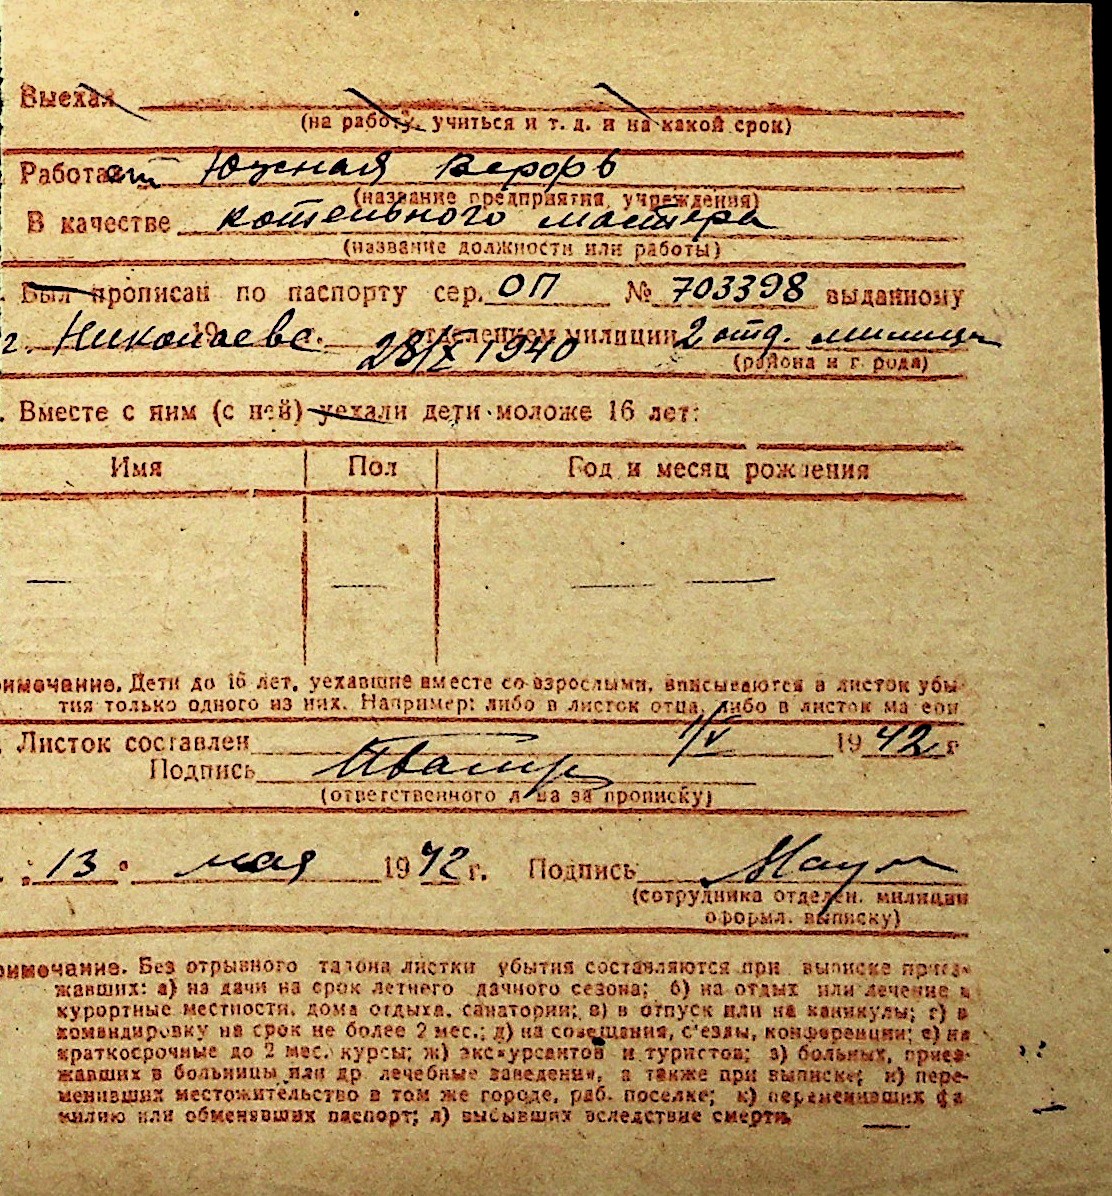 Выехал
(на работу, учиться и т. д. и на какой срок)
Работает Южная верфь
(название предприятия, учреждения)
В качестве котельного мастера
(название должности или работы)
Был прописан по паспорту сер. ОП № 703398 выданному
г. Николаеве 19 г. 28/X 1940 отделением милиции 2 отд. милиции
(района и города)
Вместе с ним (с ней) уехали дети моложе 16 лет:
Имя Пол Год и месяц рождения
— — — —
римечание. Дети до 16 лет, уехавшие вместе со взрослыми, вписываются в листок убы-
тия только одного из них. Например: либо в листок отца, либо в листок матери
Листок составлен 1/V 1942 г
Подпись
(ответственного лица за прописку)
"13" мая 1942 г. Подпись
(сотрудника отделен. милиции
оформл. выписку)
римечание. Без отрывного талона листки убытия составляются при выписке приез-
жавших: а) на дачи на срок летнего дачного сезона; б) на отдых или лечение в
курортные местности, дома отдыха, санатории; в) в отпуск или на каникулы; г) в
командировку на срок не более 2 мес.; д) на совещания, с'езды, конференции; е) на
краткосрочные до 2 мес. курсы; ж) экскурсантов и туристов; з) больных, приез-
жавших в больницы или др лечебные заведения, а также при выписке; и) пере-
менивших местожительство в том же городе, раб. поселке; к) переменивших фа
милию или обменявших паспорт; л) выбывших вследствие смерти.